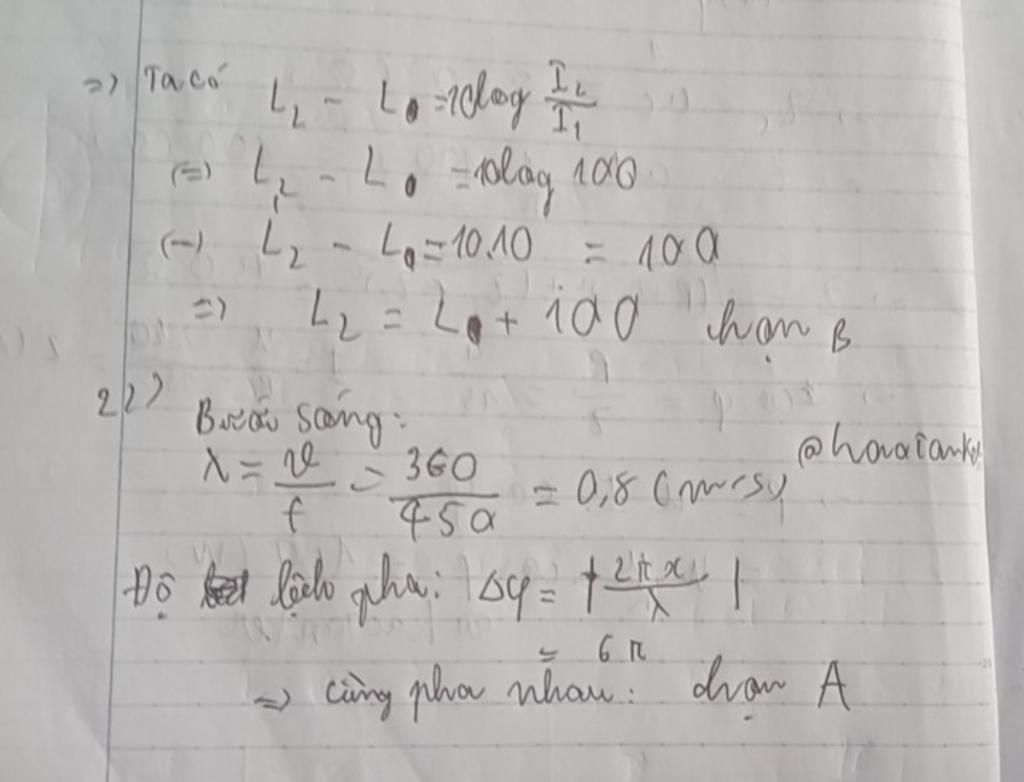 => Ta có L₂ - L₁ = 10log I₂/I₁
<=> L₂ - L₁ = 10log 100
<=> L₂ - L₁ = 10.10 = 100
=> L₂ = L₁ + 100 chọn B
22) Bước sóng:
λ = v/f = 360/450 = 0,8 (m/s)
Độ lệch pha: Δφ = |2πx/λ|
= 6π
=> cùng pha nhau: chọn A